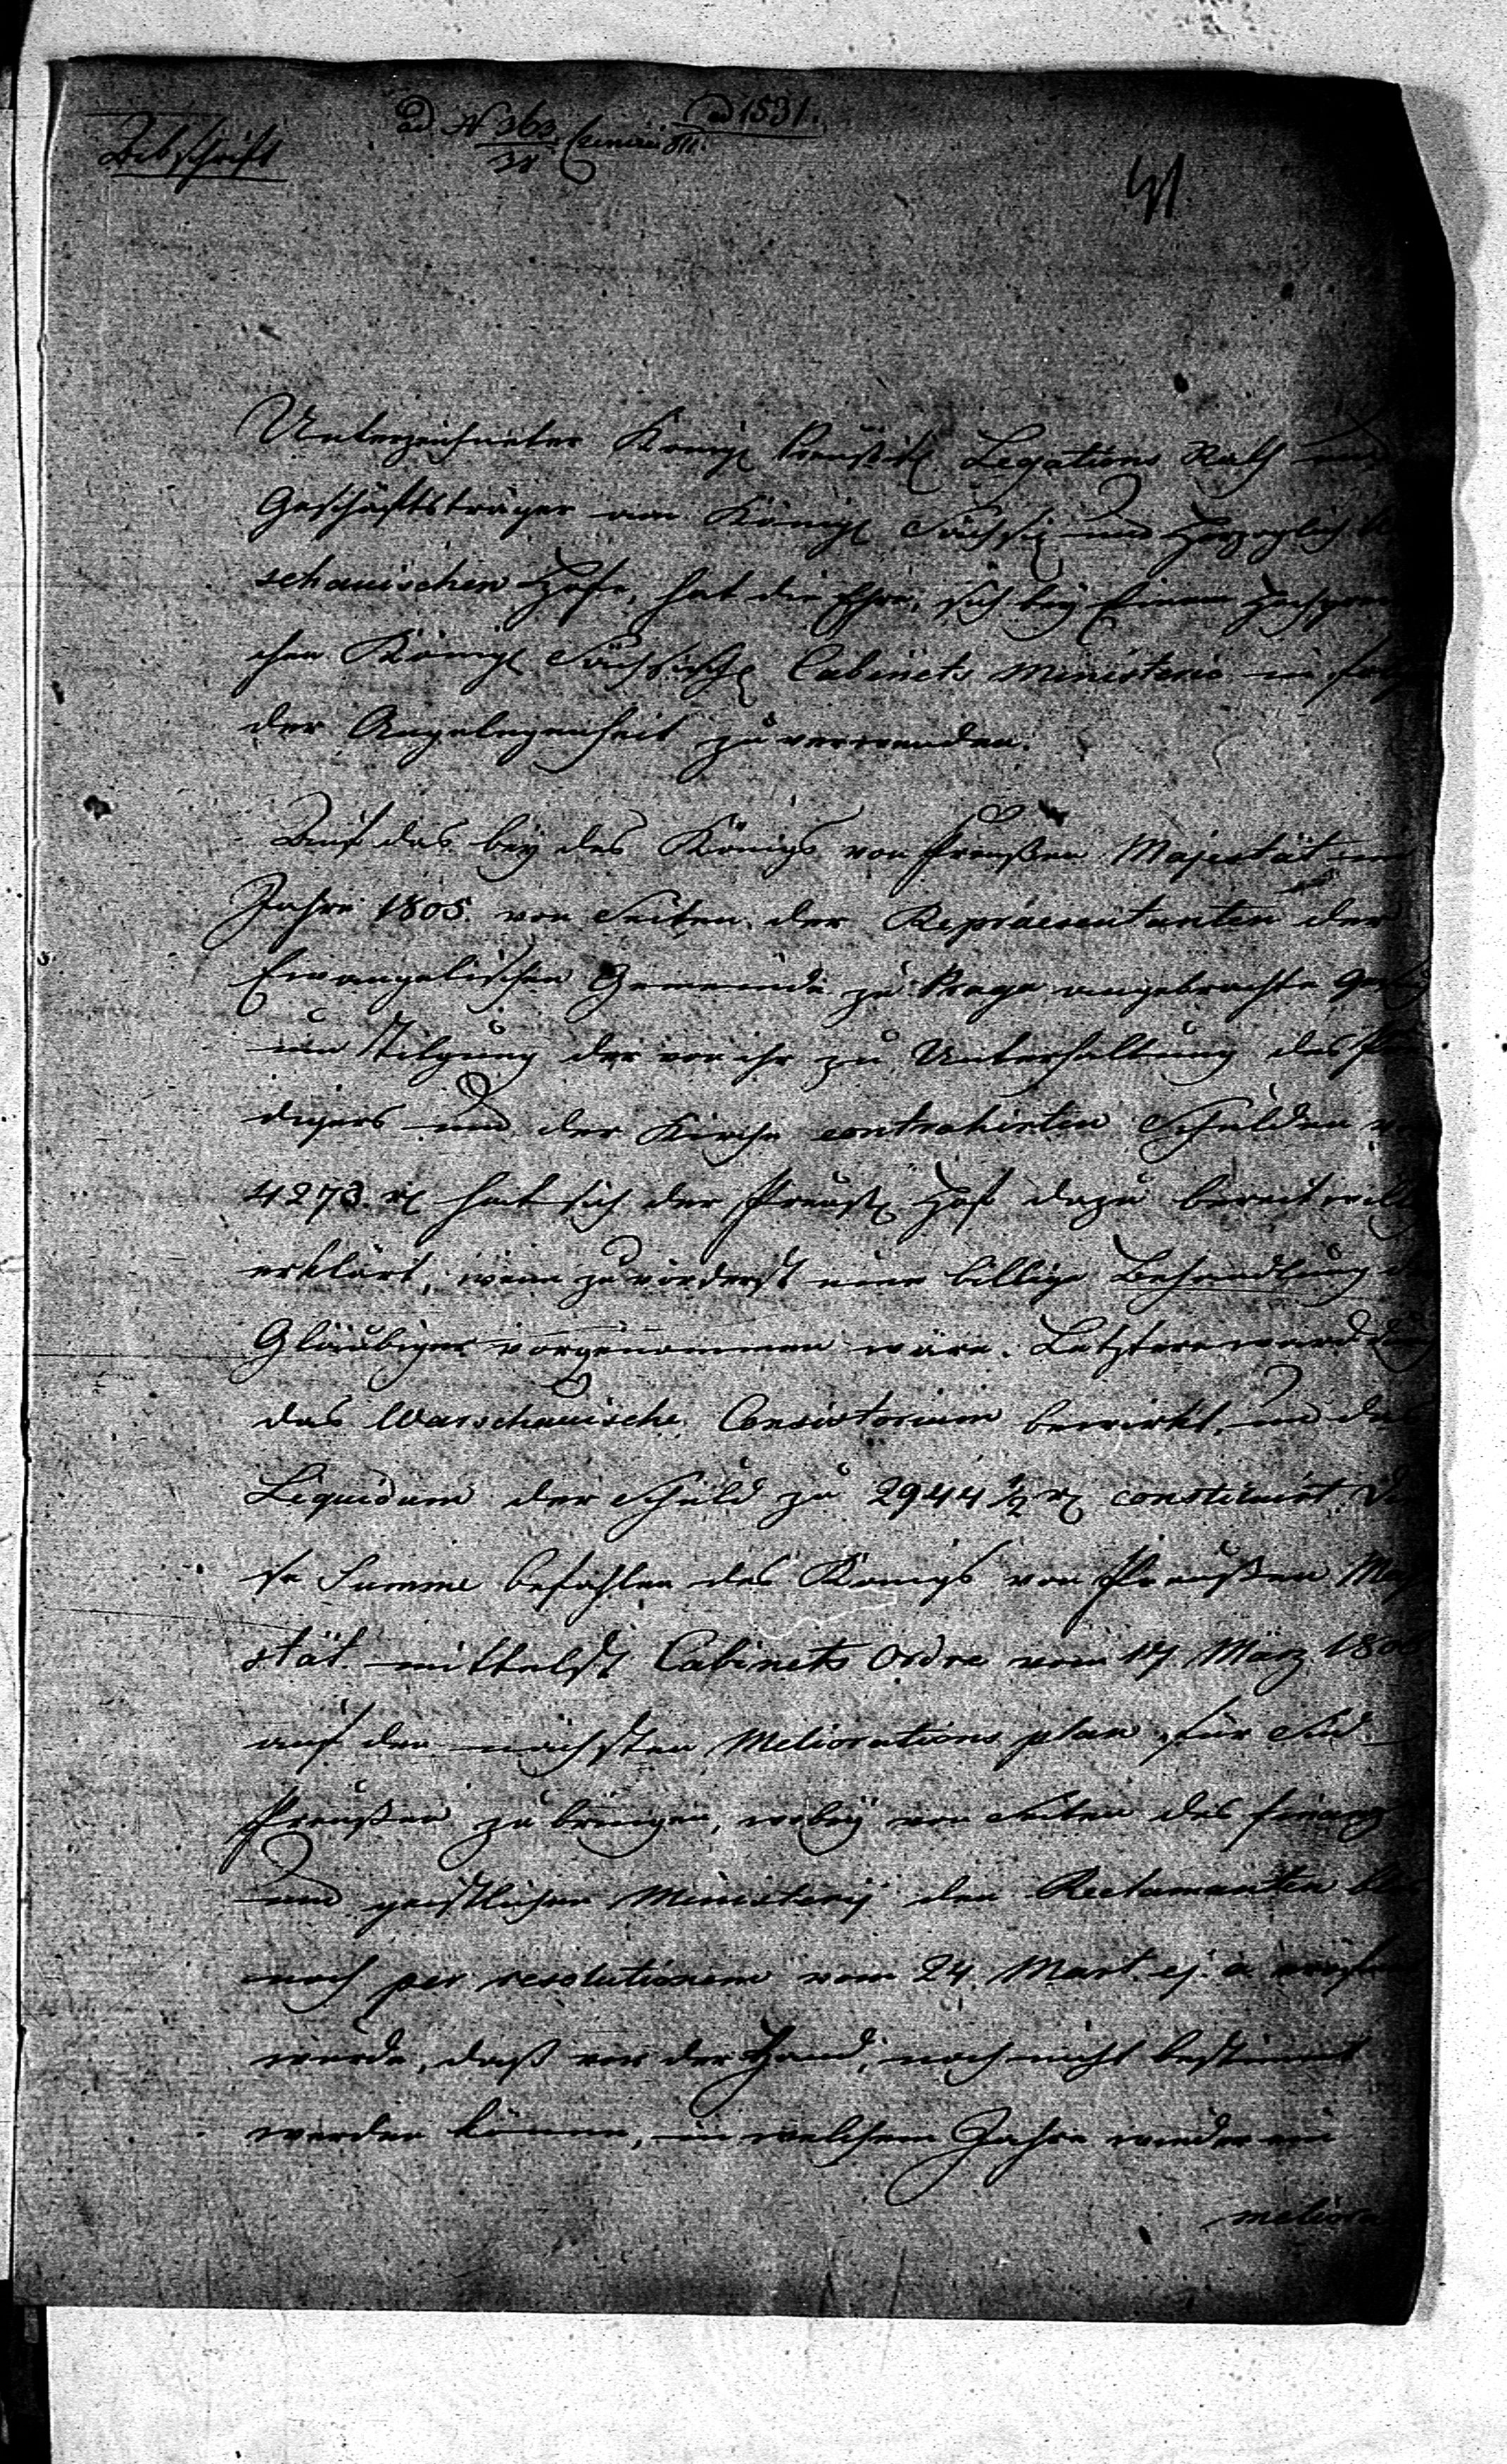 Abschrift
ad N 363 ad 1531.
38
41.
Unterzeichneter Königl Preußisch Legations Rath und
Geschäftsträger am Königl Sächsis und Herzoglich
schauischen Hofe, hat die Ehre, sich bey Einem
chen Königl Sächsische Cabinets Ministerio in
der Angelegenheit zu verwenden.
Auf das bey des Königs von Preußen Majestät im
Jahre 1805 von Seiten der Repräesentanten der
Evangelischen Gemeinde zu Praga angebrachte
um Tilgung der von ihr zu Unterhaltung des
digers und der Kirche contrahirten Schulden
4273 rl hat sich der Preuß Hof dazu bereitwill
erklärt, wenn zuvörderst eine billige Behandlung
Gläubiger vorgenommen wäre. Letztere ward
das Warschauische Consistorium bewirkt, und das
Liquidum der Schuld zu 2944 ½ rl constituirt
se Summe befahlen des Königs von Preußen Maj
stät mittelst Cabinets Ordre vom 17 März 180
auf den nächsten Meliorations plan für Süd
Preußen zu bringen, wobey von Seiten des finanz
und geistlichen Ministerij den Reclamanten
noch per resolutionem vom 24 Mart. ej. a.
wurde, daß vor der Hand, noch nicht bestimmt
werden könne, in welchem Jahre wieder ein
meliora